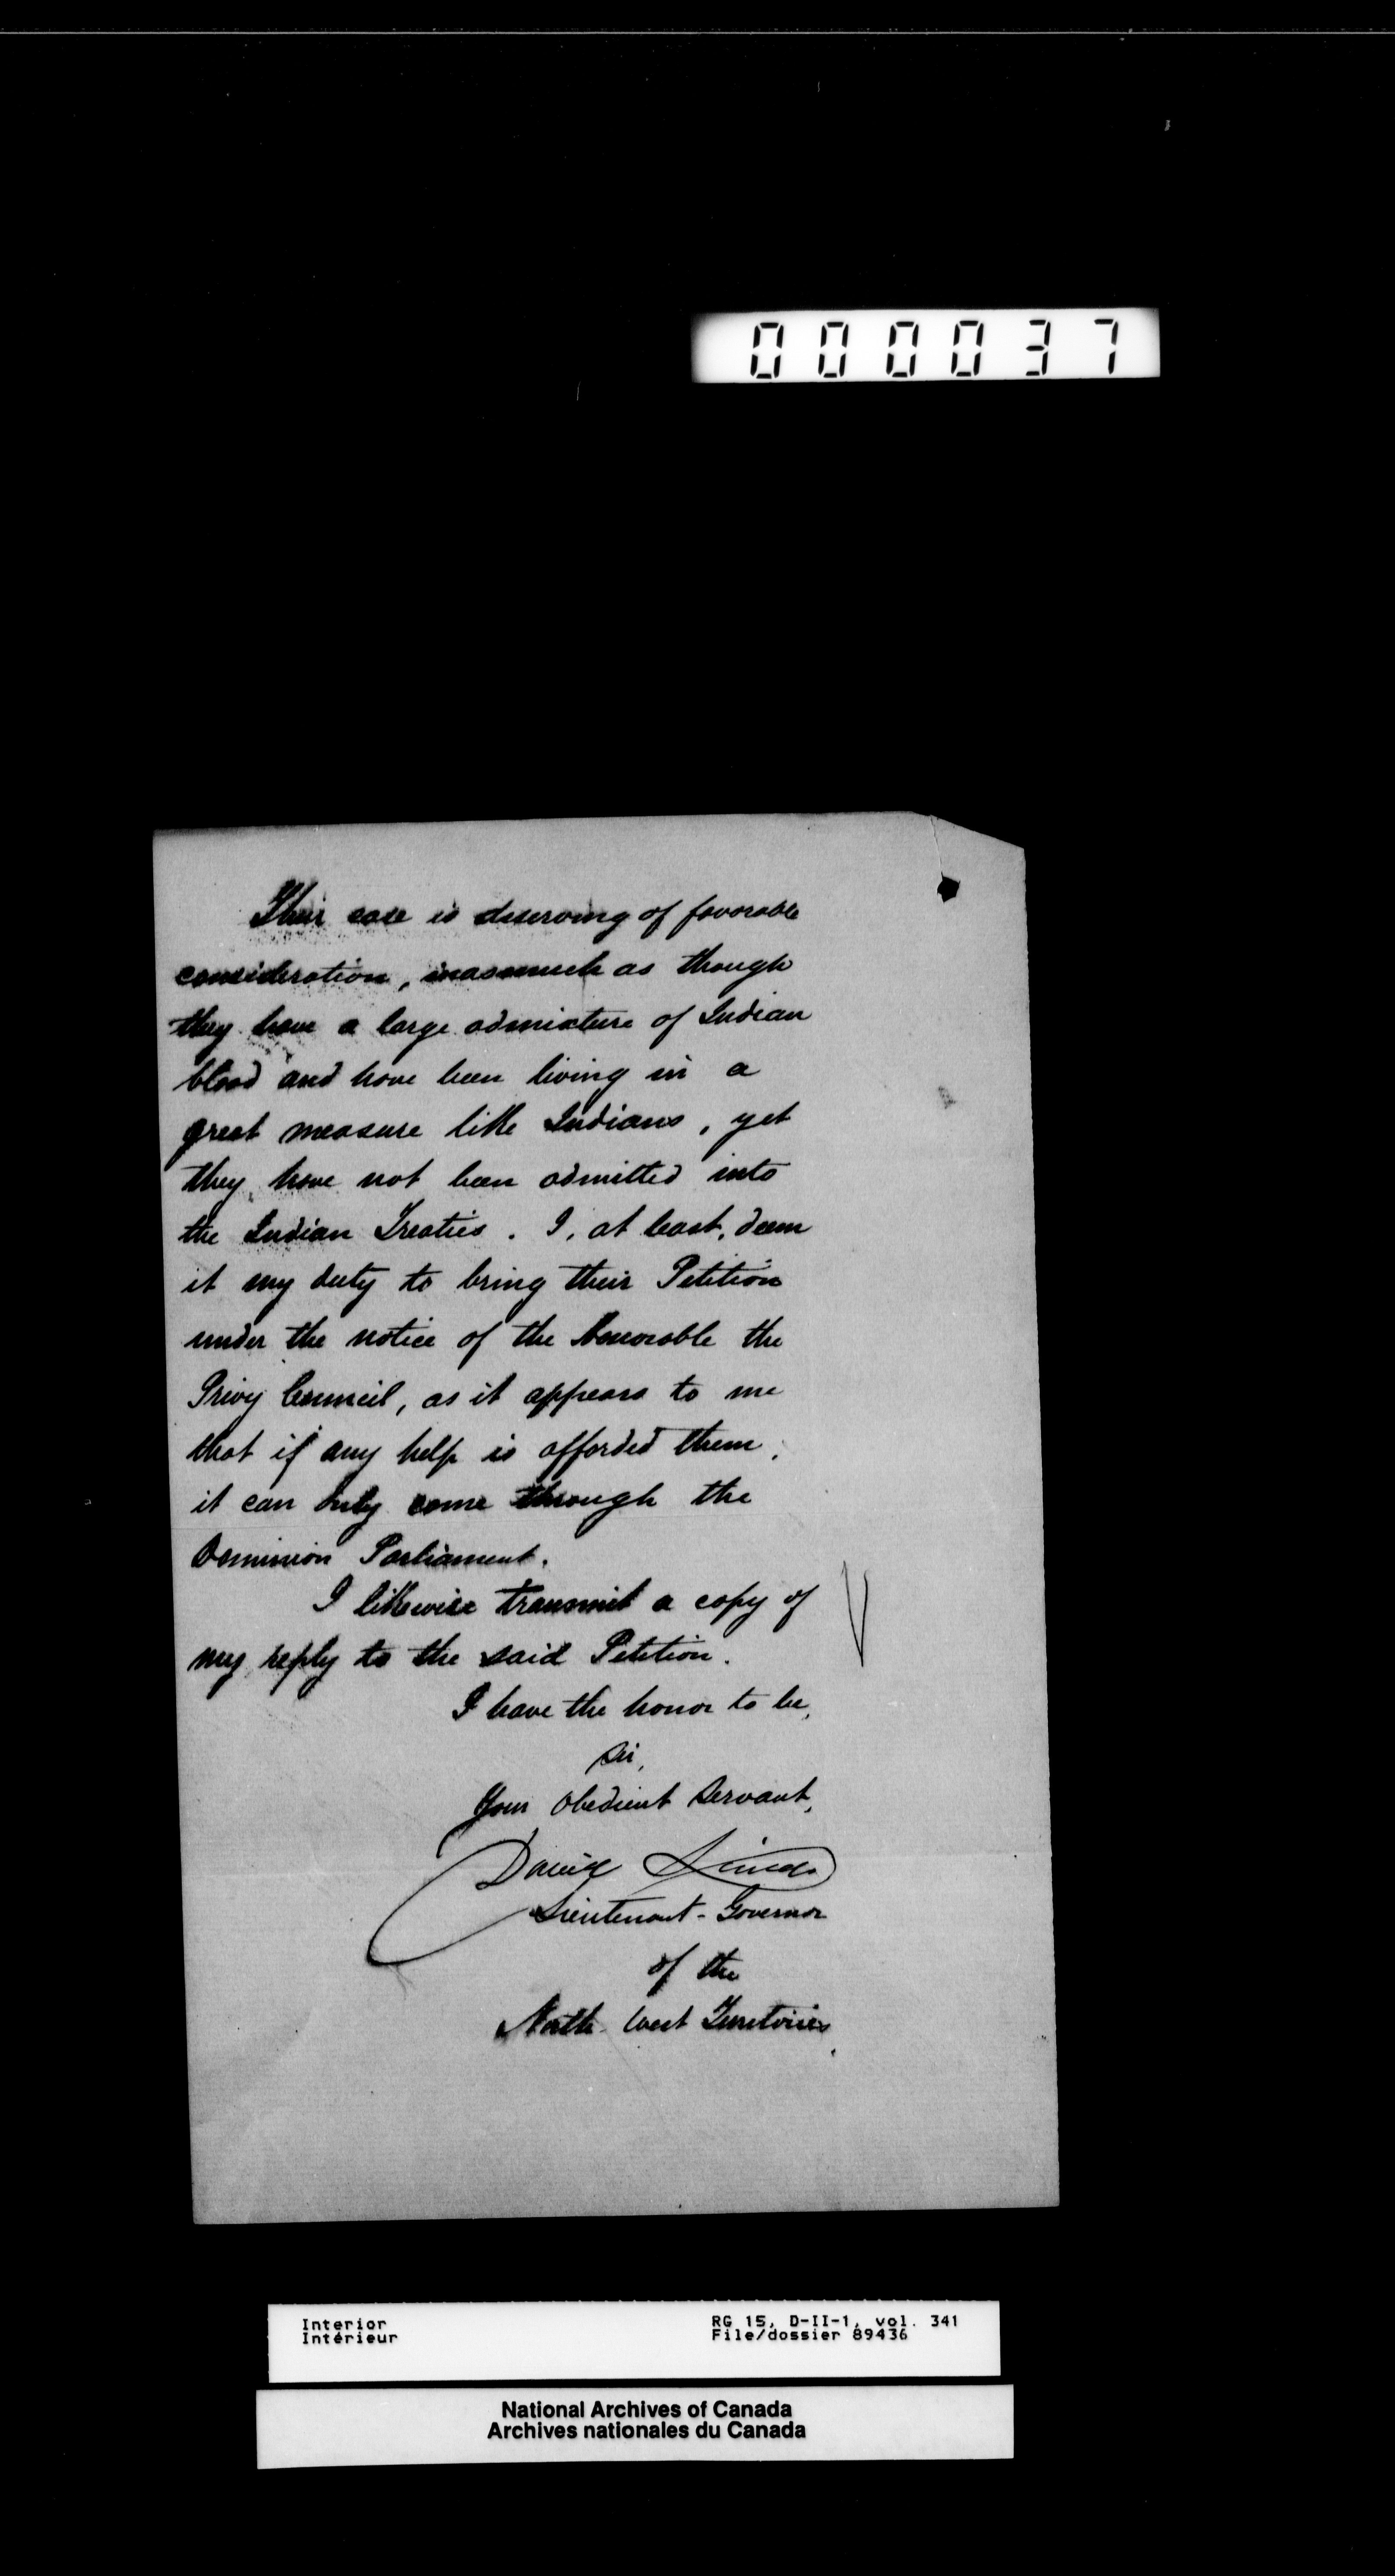 000037
Their case is deserving of favorable
consideration, inasmuch as though
they have a large admixture of Indian
blood and have been living in a
great measure like Indians, yet
they have not been admitted into
the Indian Treaties. I, at least, deem
it my duty to bring their Petition
under the notice of the Honorable the
Privy Council, as it appears to me
that if any help is afforded them,
it can only come through the
Dominion Parliament.
I likewise transmit a copy of
my reply to the said Petition.
I have the honor to be,
Sir,
Your Obedient Servant,
David Laird
Lieutenant-Governor
of the
North West Territories.
Interior
Intérieur
RG 15, D-II-1, vol. 341
File/dossier 89436
National Archives of Canada
Archives nationales du Canada